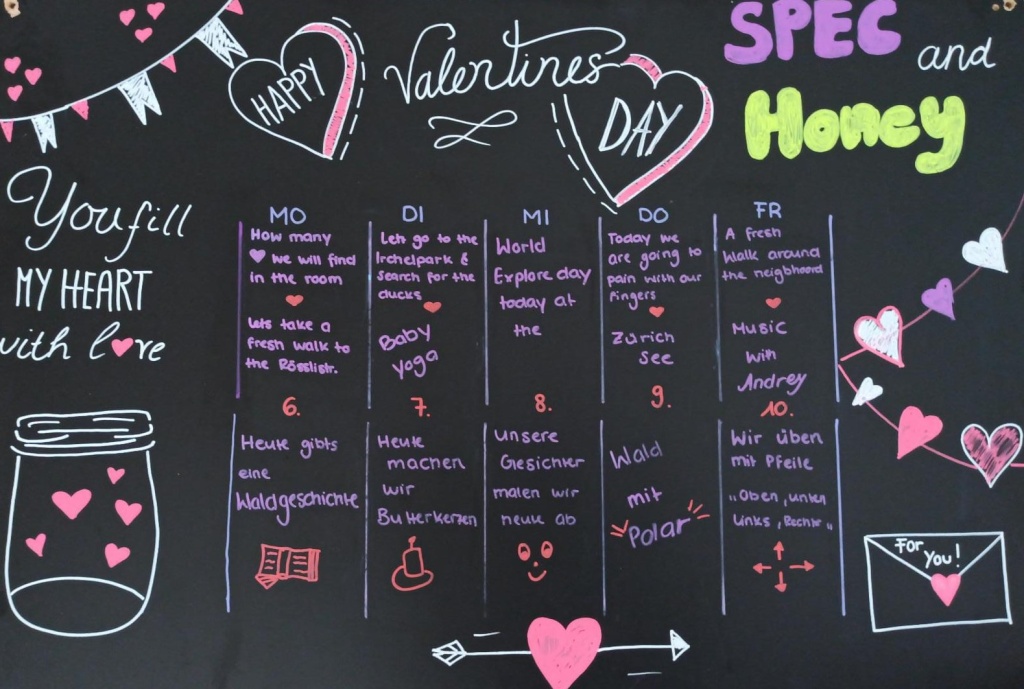 HAPPY
Valentines
DAY
SPEC and
Honey
You fill
MY HEART
with love
MO
How many
we will find
in the room
Lets take a
fresh walk to
the Rösslistr.
DI
Lets go to the
Irchelpark &
Search for the
ducks
Baby
yoga
MI
World
Explore day
today at
the
DO
Today we
are going to
pain with our
fingers
Zürich
see
FR
A fresh
Walk around
the neigbhoord
Music
with
Andrey
6.
7.
8.
9.
10.
Heute gibts
eine
Waldgeschichte
Heute
machen
wir
Butterkerzen
unsere
Gesichter
malen wir
heute ab
Wald
mit
Polar
Wir üben
mit Pfeile
"Oben, unten
Links, Rechts"
For
You!